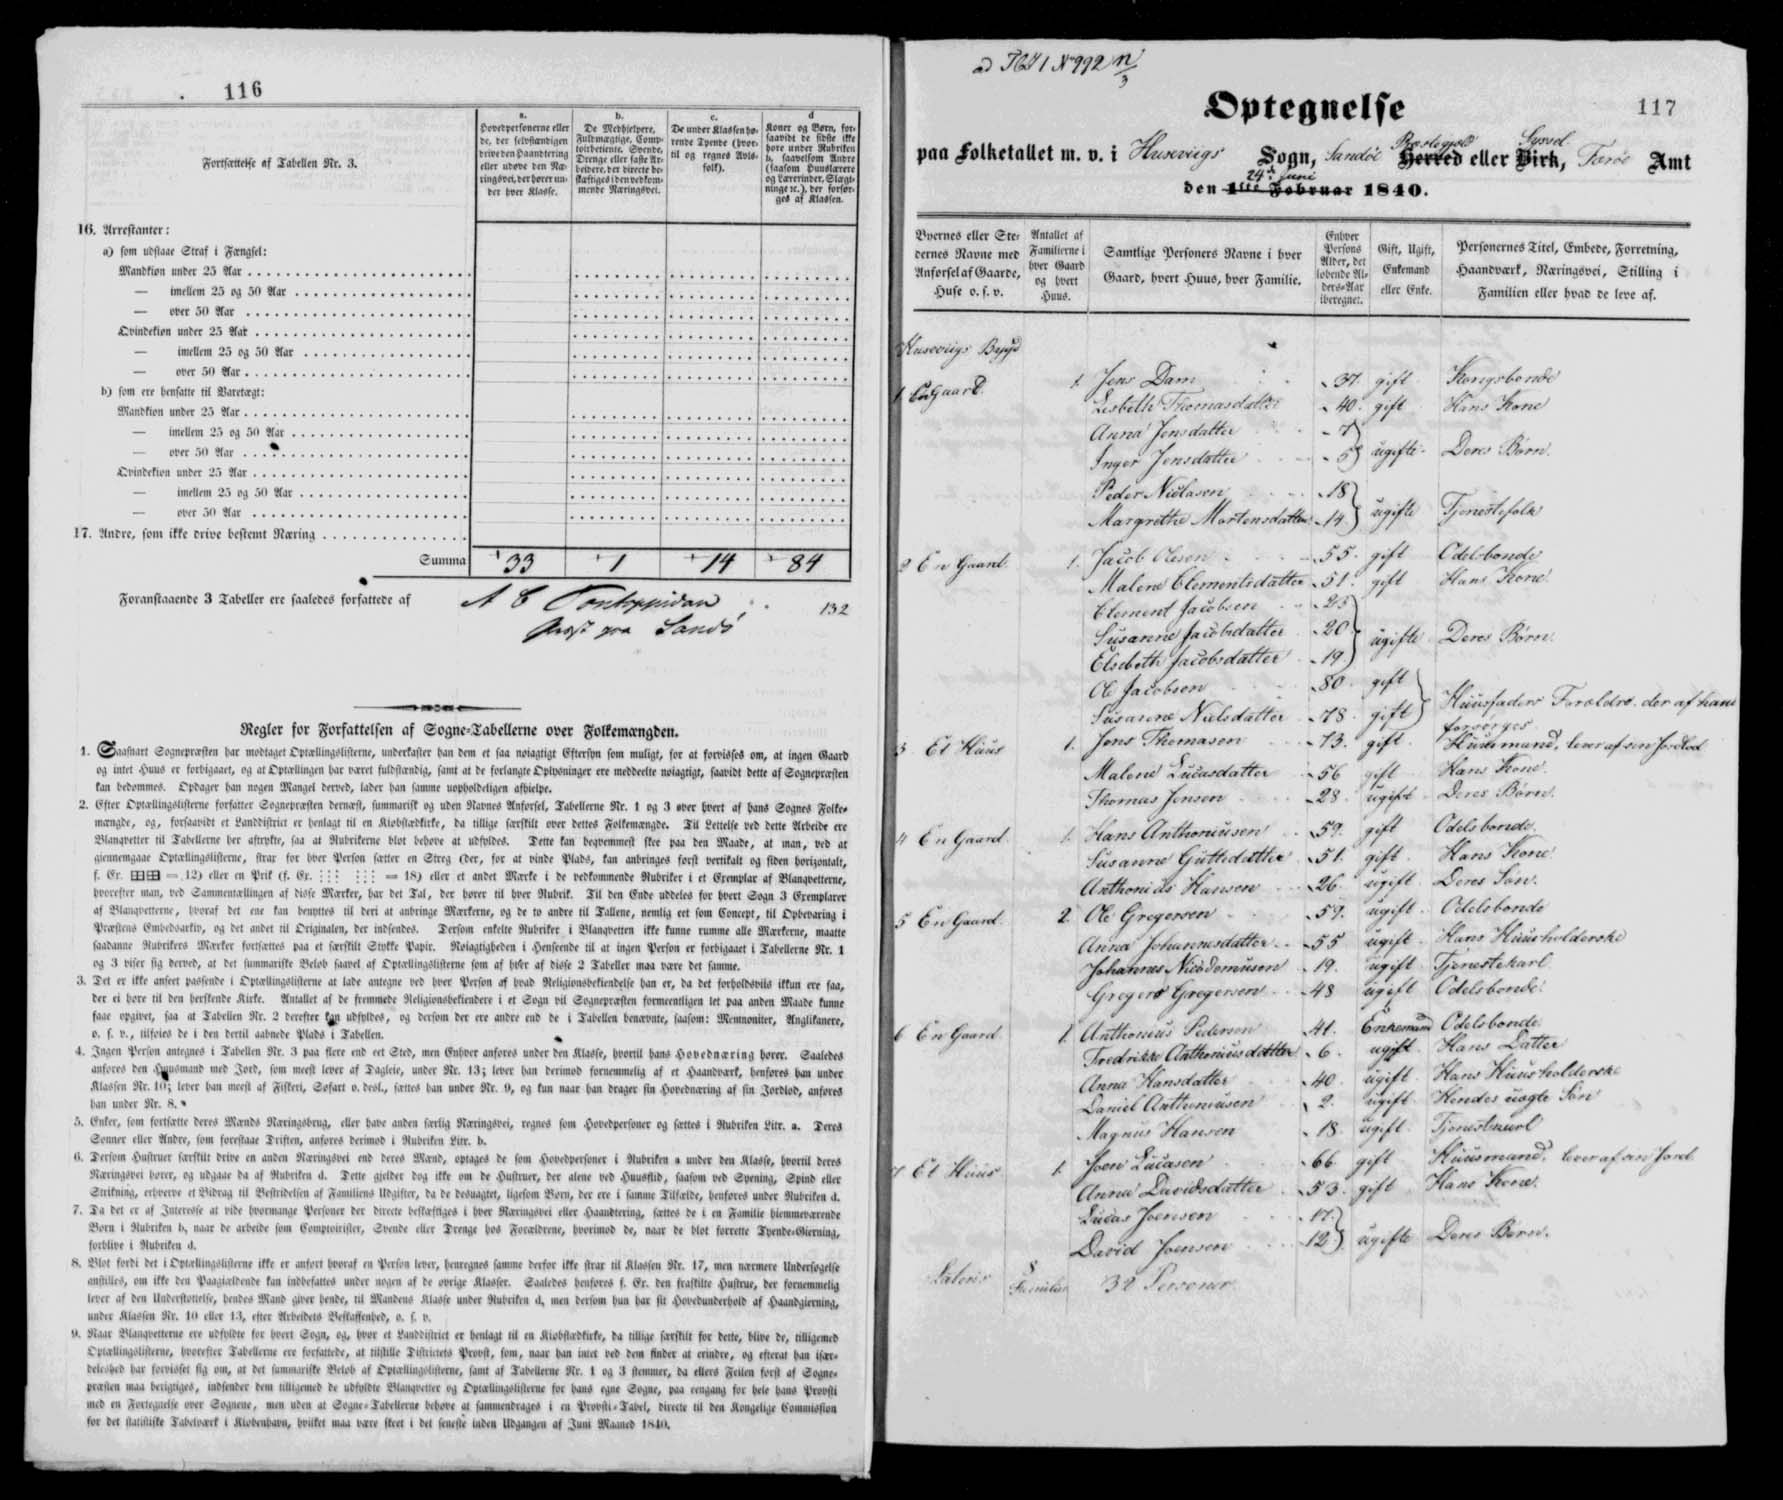 116
Fortsættelse af Tabellen Nr. 3.
a.
Hovedpersonerne eller
de, der selvstændigen
drive den Haandtering
eller udøve den Næ-
ringsvei, der hører un-
der hver Klasse.
b.
De Medhjelpere,
Fuldmægtige, Comp-
toirbetiente, Svende,
Drenge eller faste Ar-
beidere, der directe be-
skæftiges i den vedkom-
mende Næringsvei.
c.
De under Klassen hø-
rende Tyende (hvor-
til og regnes Avls-
folk).
d
Koner og Børn, for-
saavidt de sidste ikke
høre under Rubriken
b, saavelsom Andre
(saasom Huuslærere
og Lærerinder, Slægt-
ninge ꝛc.), der forsør-
ges af Klassen.
16. Arrestanter:
a) som udstaae Straf i Fængsel:
Mandkiøn under 25 Aar
— imellem 25 og 50 Aar
— over 50 Aar
Qvindekiøn under 25 Aar
— imellem 25 og 50 Aar
— over 50 Aar
b) som ere hensatte til Varetægt:
Mandkiøn under 25 Aar
— imellem 25 og 50 Aar
— over 50 Aar
Qvindekiøn under 25 Aar
— imellem 25 og 50 Aar
— over 50 Aar
17. Andre, som ikke drive bestemt Næring
Summa 33 1 14 84
Foranstaaende 3 Tabeller ere saaledes forfattede af A C Pontoppidan 132
Præst paa Sandø
Regler for Forfattelsen af Sogne-Tabellerne over Folkemængden.
1. Saasnart Sognepræsten har modtaget Optællingslisterne, underkaster han dem et saa nøiagtigt Eftersyn som muligt, for at forvisses om, at ingen Gaard
og intet Huus er forbigaaet, og at Optællingen har været fuldstændig, samt at de forlangte Oplysninger ere meddeelte nøiagtigt, saavidt dette af Sognepræsten
kan bedømmes. Opdager han nogen Mangel derved, lader han samme uopholdeligen afhielpe.
2. Efter Optællingslisterne forfatter Sognepræsten dernæst, summarisk og uden Navnes Anførsel, Tabellerne Nr. 1 og 3 over hvert af hans Sognes Folke-
mængde, og, forsaavidt et Landdistrict er henlagt til en Kiøbstædkirke, da tillige særskilt over dettes Folkemængde. Til Lettelse ved dette Arbeide ere
Blanqvetter til Tabellerne her aftrykte, saa at Rubrikerne blot behøve at udfyldes. Dette kan beqvemmest skee paa den Maade, at man, ved at
giennemgaae Optællingslisterne, strax for hver Person sætter en Streg (der, for at vinde Plads, kan anbringes først vertikalt og siden horizontalt,
f. Ex. ⊞⊞ = 12) eller en Prik (f. Ex. ⋮⋮⋮ ⋮⋮⋮ = 18) eller et andet Mærke i de vedkommende Rubriker i et Exemplar af Blanqvetterne,
hvorefter man, ved Sammentællingen af disse Mærker, har det Tal, der hører til hver Rubrik. Til den Ende uddeles for hvert Sogn 3 Exemplarer
af Blanqvetterne, hvoraf det ene kan benyttes til deri at anbringe Mærkerne, og de to andre til Tallene, nemlig eet som Concept, til Opbevaring i
Præstens Embedsarkiv, og det andet til Originalen, der indsendes. Dersom enkelte Rubriker i Blanqvetten ikke kunne rumme alle Mærkerne, maatte
saadanne Rubrikers Mærker fortsættes paa et særskilt Stykke Papir. Nøiagtigheden i Henseende til at ingen Person er forbigaaet i Tabellerne Nr. 1
og 3 viser sig derved, at det summariske Beløb saavel af Optællingslisterne som af hver af disse 2 Tabeller maa være det samme.
3. Det er ikke anseet passende i Optællingslisterne at lade antegne ved hver Person af hvad Religionsbekiendelse han er, da det forholdsviis ikkun ere faa,
der ei høre til den herskende Kirke. Antallet af de fremmede Religionsbekiendere i et Sogn vil Sognepræsten formeentligen let paa anden Maade kunne
faae opgivet, saa at Tabellen Nr. 2 derefter kan udfyldes, og dersom der ere andre end de i Tabellen benævnte, saasom: Memnoniter, Anglikanere,
o. s. v., tilføies de i den dertil aabnede Plads i Tabellen.
4. Ingen Person antegnes i Tabellen Nr. 3 paa flere end eet Sted, men Enhver anføres under den Klasse, hvortil hans Hovednæring hører. Saaledes
anføres den Huusmand med Jord, som meest lever af Dagleie, under Nr. 13; lever han derimod fornemmelig af et Haandværk, henføres han under
Klassen Nr. 10; lever han meest af Fiskeri, Søfart o. desl., sættes han under Nr. 9, og kun naar han drager sin Hovednæring af sin Jordlod, anføres
han under Nr. 8.
5. Enker, som fortsætte deres Mænds Næringsbrug, eller have anden særlig Næringsvei, regnes som Hovedpersoner og sættes i Rubriken Litr. a. Deres
Sønner eller Andre, som forestaae Driften, anføres derimod i Rubriken Litr. b.
6. Dersom Hustruer særskilt drive en anden Næringsvei end deres Mænd, optages de som Hovedpersoner i Rubriken a under den Klasse, hvortil deres
Næringsvei hører, og udgaae da af Rubriken d. Dette gjelder dog ikke om de Hustruer, der alene ved Huusflid, saasom ved Spening, Spind eller
Strikning, erhverve et Bidrag til Bestridelsen af Familiens Udgifter, da de desuagtet, ligesom Børn, der ere i samme Tilfælde, henføres under Rubriken d.
7. Da det er af Interesse at vide hvormange Personer der directe beskæftiges i hver Næringsvei eller Haandtering, sættes de i en Familie hiemmeværende
Børn i Rubriken b, naar de arbeide som Comptoirister, Svende eller Drenge hos Forældrene, hvorimod de, naar de blot forrette Tyende-Gierning,
forblive i Rubriken d.
8. Blot fordi det i Optællingslisterne ikke er anført hvoraf en Person lever, henregnes samme derfor ikke strax til Klassen Nr. 17, men nærmere Undersøgelse
anstilles, om ikke den Paagiældende kan indbefattes under nogen af de øvrige Klasser. Saaledes henføres f. Ex. den fraskilte Hustrue, der fornemmelig
lever af den Understøttelse, hendes Mand giver hende, til Mandens Klasse under Rubriken d, men dersom hun har sit Hovedunderhold af Haandgierning,
under Klassen Nr. 10 eller 13, efter Arbeidets Beskaffenhed, o. s. v.
9. Naar Blanqvetterne ere udfyldte for hvert Sogn, og, hvor et Landdistrict er henlagt til en Kiøbstædkirke, da tillige særskilt for dette, blive de, tilligemed
Optællingslisterne, hvorefter Tabellerne ere forfattede, at tilstille Districtets Provst, som, naar han intet ved dem finder at erindre, og efterat han især-
deleshed har forvisset sig om, at det summariske Beløb af Optællingslisterne, samt af Tabellerne Nr. 1 og 3 stemmer, da ellers Feilen først af Sogne-
præsten maa berigtiges, indsender dem tilligemed de udfyldte Blanqvetter og Optællingslisterne for hans egne Sogne, paa eengang for hele hans Provsti
med en Fortegnelse over Sognene, men uden at Sogne-Tabellerne behøve at sammendrages i en Provsti-Tabel, directe til den Kongelige Commission
for det statistiske Tabelværk i Kiøbenhavn, hvilket maa være skeet i det seneste inden Udgangen af Juni Maaned 1840.
117
Optegnelse
Præstegjeld Syssel
paa Folketallet m. v. i Huseviigs Sogn, Sandöe Herred eller Birk, Færöe Amt
24de Juni
den 1ste Februar 1840.
Byernes eller Ste-
dernes Navne med
Anførsel af Gaarde,
Huse o. s. v.
Antallet af
Familierne i
hver Gaard
og hvert
Huus.
Samtlige Personers Navne i hver
Gaard, hvert Huus, hver Familie.
Enhver
Persons
Alder, det
løbende Al-
ders-Aar
iberegnet.
Gift, Ugift,
Enkemand
eller Enke.
Personernes Titel, Embede, Forretning,
Haandværk, Næringsvei, Stilling i
Familien eller hvad de leve af.
Huseviigs Bygd
1 En Gaard. 1. Jens Dam 37. gift Kongsbonde
Lisbeth Thomasdatter 40. gift Hans Kone
Anna Jensdatter 7
Inger Jensdatter 5 ugifte Deres Børn.
Peder Niclasen 18
Margrethe Mortensdatter 14 ugifte Tjenestefolk
2 En Gaard. 1. Jacob Olesen 55. gift Odelsbonde
Malene Clementsdatter 51. gift Hans Kone.
Clement Jacobsen 23
Susanne Jacobsdatter 20 ugifte Deres Børn.
Elsebeth Jacobsdatter 19
Ole Jacobsen 80. gift
Susanne Nielsdatter 78. gift Huusfaders Forældre, der af ham
forsørges
3 Et Huus 1. Jens Thomasen 73. gift Huusmand, lever af sin Jordlod
Malene Lucasdatter 56 gift Hans Kone.
Thomas Jensen 28. ugift Deres Børn.
4 En Gaard. 1. Hans Anthoniusen 59. gift Odelsbonde.
Susanne Guttedatter 51. gift Hans Kone.
Anthonius Hansen 26. ugift Deres Søn.
5 En Gaard. 2. Ole Gregersen 59. ugift Odelsbonde
Anna Johannesdatter 55 ugift Hans Huusholderske
Johannes Nicodemusen 19. ugift Tjenestekarl
Gregers Gregersen 48 ugift Odelsbonde.
6 En Gaard 1. Anthonius Pedersen 41. Enkemand Odelsbonde.
Fredrikke Anthoniusdatter 6. ugift Hans Datter
Anna Hansdatter 40. ugift Hans Huusholderske
Daniel Anthoniusen 2. ugift Hendes uægte Søn
Magnus Hansen 18. ugift Tjenestekarl
7 Et Huus 1. Joen Lucasen 66. gift Huusmand, lever af sin Jord
Anna Davidsdatter 53. gift Hans Kone.
Lucas Joensen 17.
David Joensen 12 ugifte Deres Børn.
Lateris 8 Familier 32 Personer